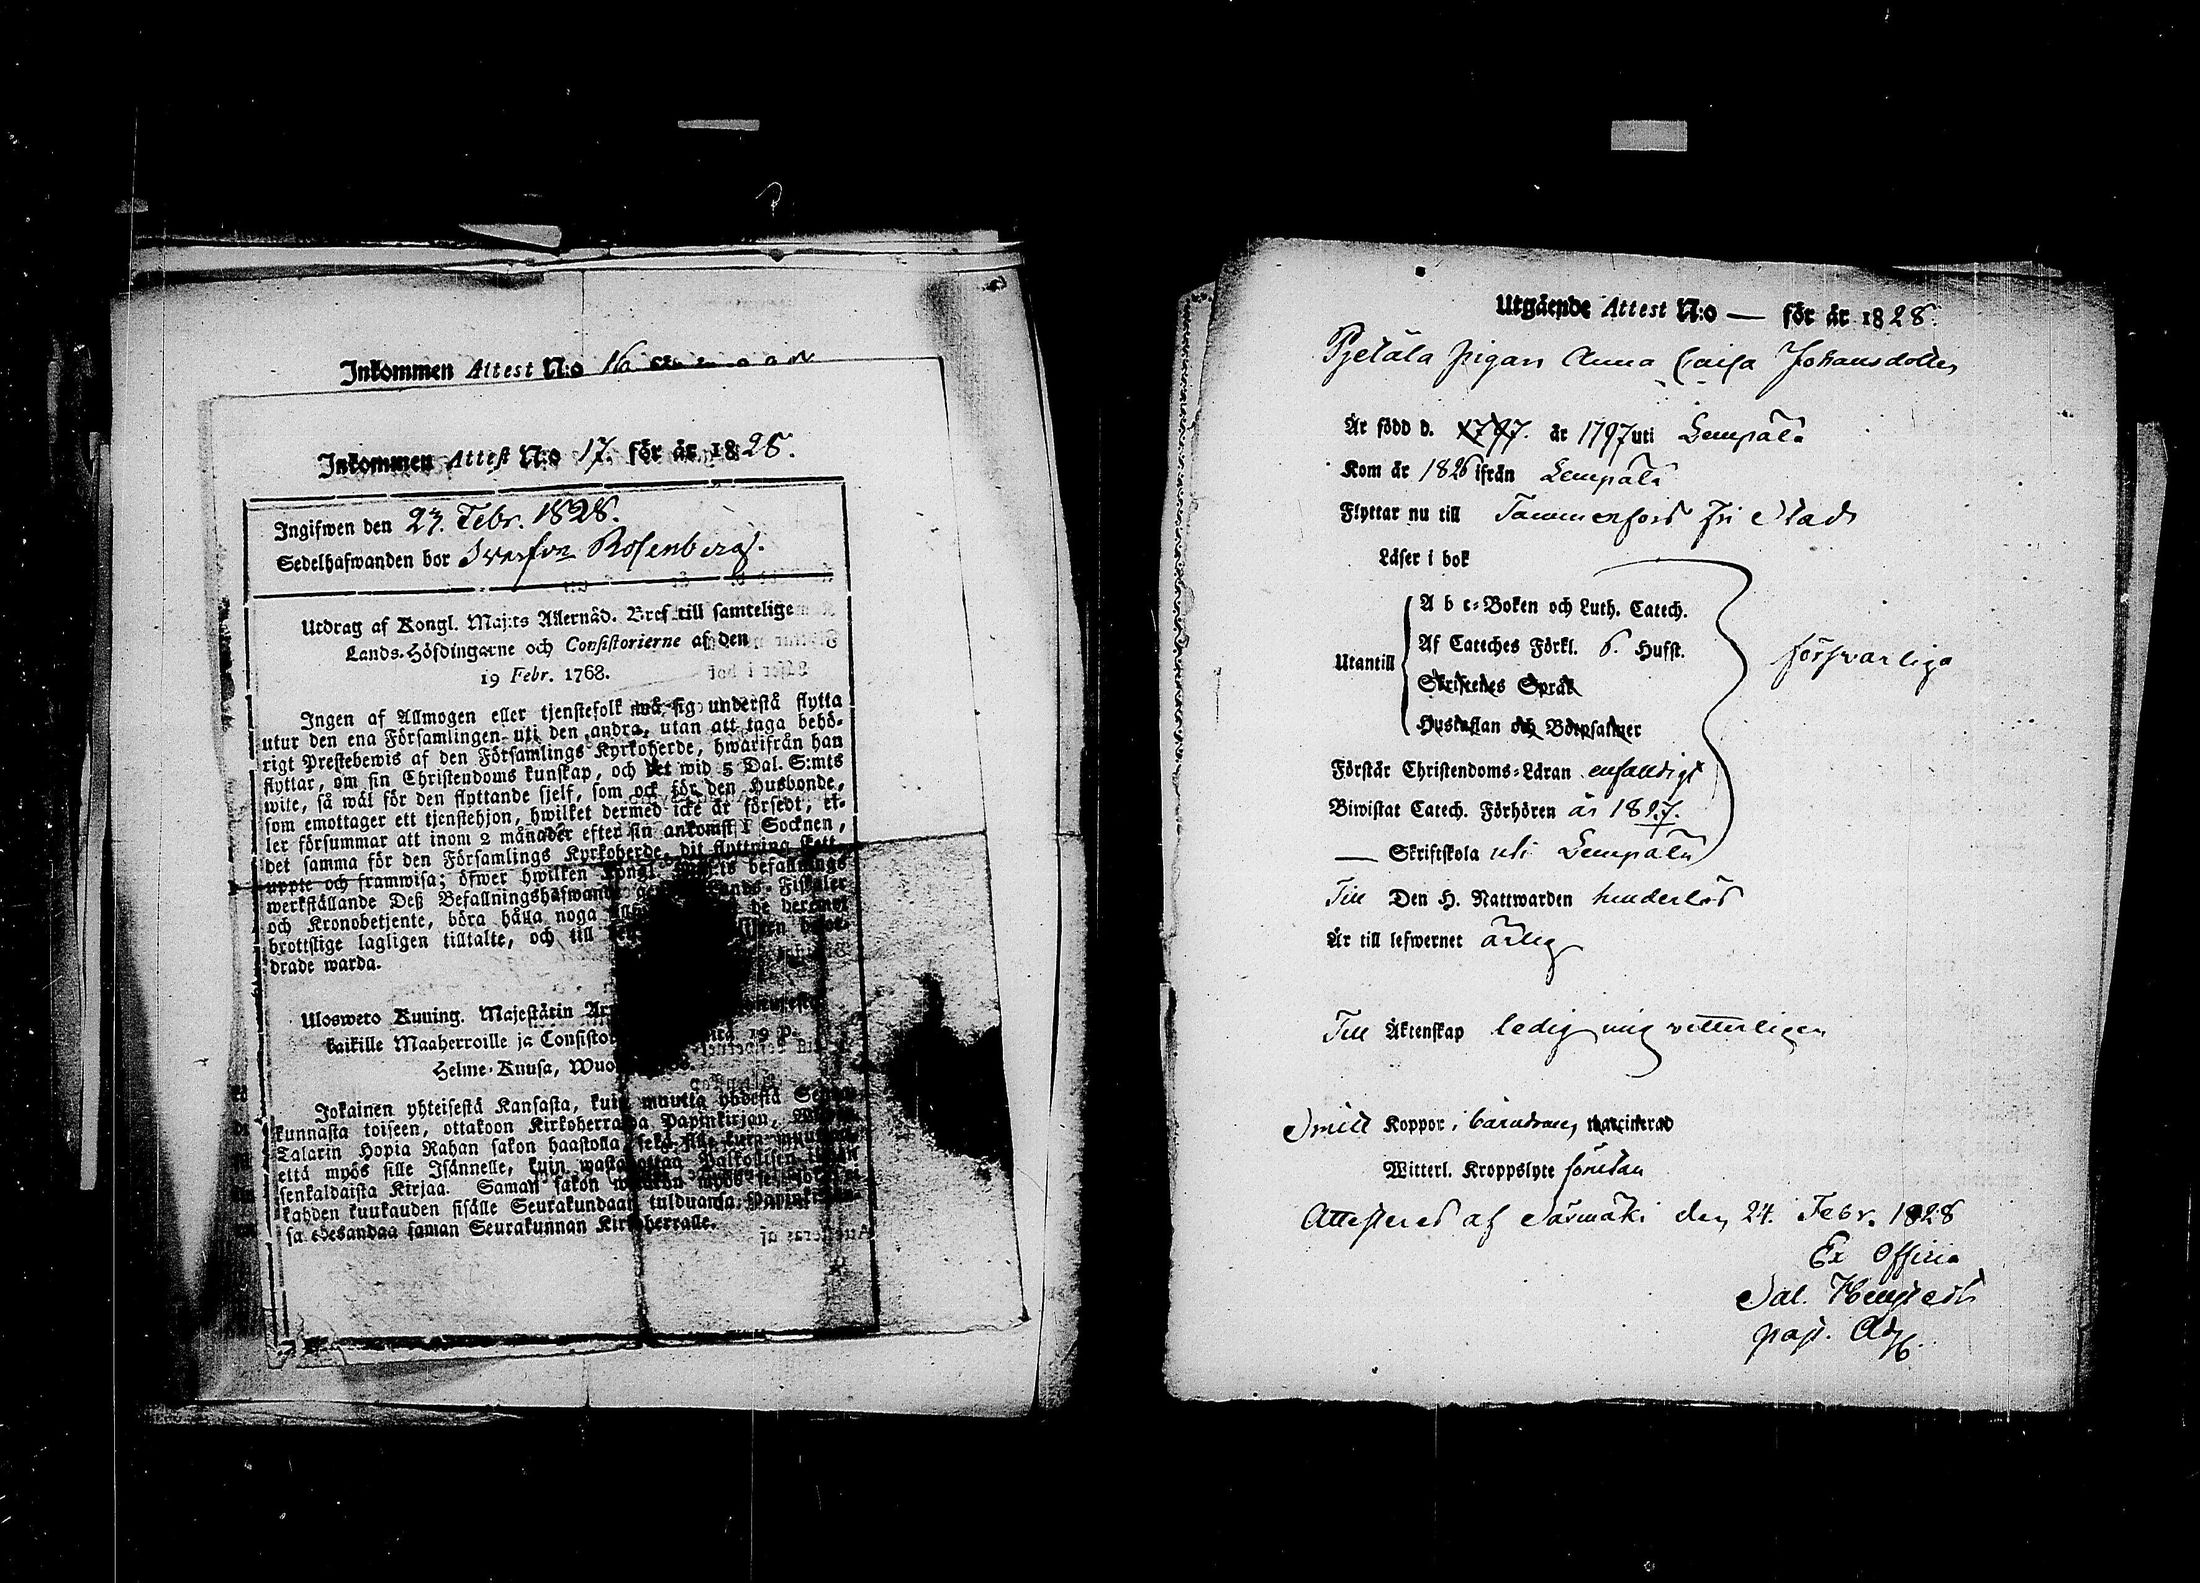 Inkommen Attest N:o 16
Inkommen Attest N:o 17. för år 1828.
Ingifwen den 27. Febr. 1828.
Sedelhafwanden bor Rosenberg.
Utdrag af Kongl. Maj:ts Allernåd. Bref till samtelige
Lands-Höfdingarne och Consistorierne af den
19 Febr. 1768.
Ingen af Allmogen eller tjenstefolk må sig understå flytta
utur den ena Församlingen uti den andra, utan att taga behö-
rigt Prestebewis af den Församlings Kyrkoherde, hwarifrån han
flyttar, om sin Christendoms kunskap, och det wid 5 Dal. S:mts
wite, så wäl för den flyttande sjelf, som ock för den Husbonde,
som emottager ett tjenstehjon, hwilket dermed icke är försedt, el-
ler försummar att inom 2 månader efter sin ankomst i Socknen,
det samma för den Församlings Kyrkoherde, dit flyttning skett,
uppte och framwisa; öfwer hwilken Kongl. befallnings
werkställande Deß Befallningshafwande Lands-Fiskaler
och Kronobetjente, böra hålla noga de deremot
brottslige lagligen tilltalte, och till
drade warda.
Ulosweto Kuning. Majestätin
kaikille Maaherroille ja 19 p.
Helme-Kuusa,
Jokainen yhteisestä Kansasta, kuin muutta yhdestä
kunnasta toiseen, ottakoon Kirkoherralda Papinkirjan,
Talarin Hopia Rahan sakon haastolla, sekä sille kuin
että myös sille Isännelle, kuin
senkaldaista Kirjaa. Saman sakon
kahden kuukauden sisälle Seurakundaan tulduansa,
sa edesandaa saman Seurakunnan Kirkoherralle.
Utgående Attest N:o — för år 1828.
Pjetälä pigan Anna Caisa Johansdotter
Är född d. 1797. år 1797 uti Lempälä
Kom år 1826 ifrån Lempälä
Flyttar nu till Tammerfors fri Stad
Läser i bok
Utantill
A b c-Boken och Luth. Catech.
Af Cateches Förkl. 6. Hufst.
Skriftenes Språk
Hustaflan och Botpsalmer
försvarliga
Förstår Christendoms-Läran enfaldigt
Biwistat Catech. Förhören år 1827.
— Skriftskola uti Lempälä
Till Den H. Nattwarden hinderlös
Är till lefwernet ärlig
Till Äktenskap ledig mig vetterligen
Koppor i barndomen vaccinerad
Witterl. Kroppslyte förutan
Attesteras af Särmäki den 24. Febr. 1828
Ex Officio
Sal.
past. Adj.